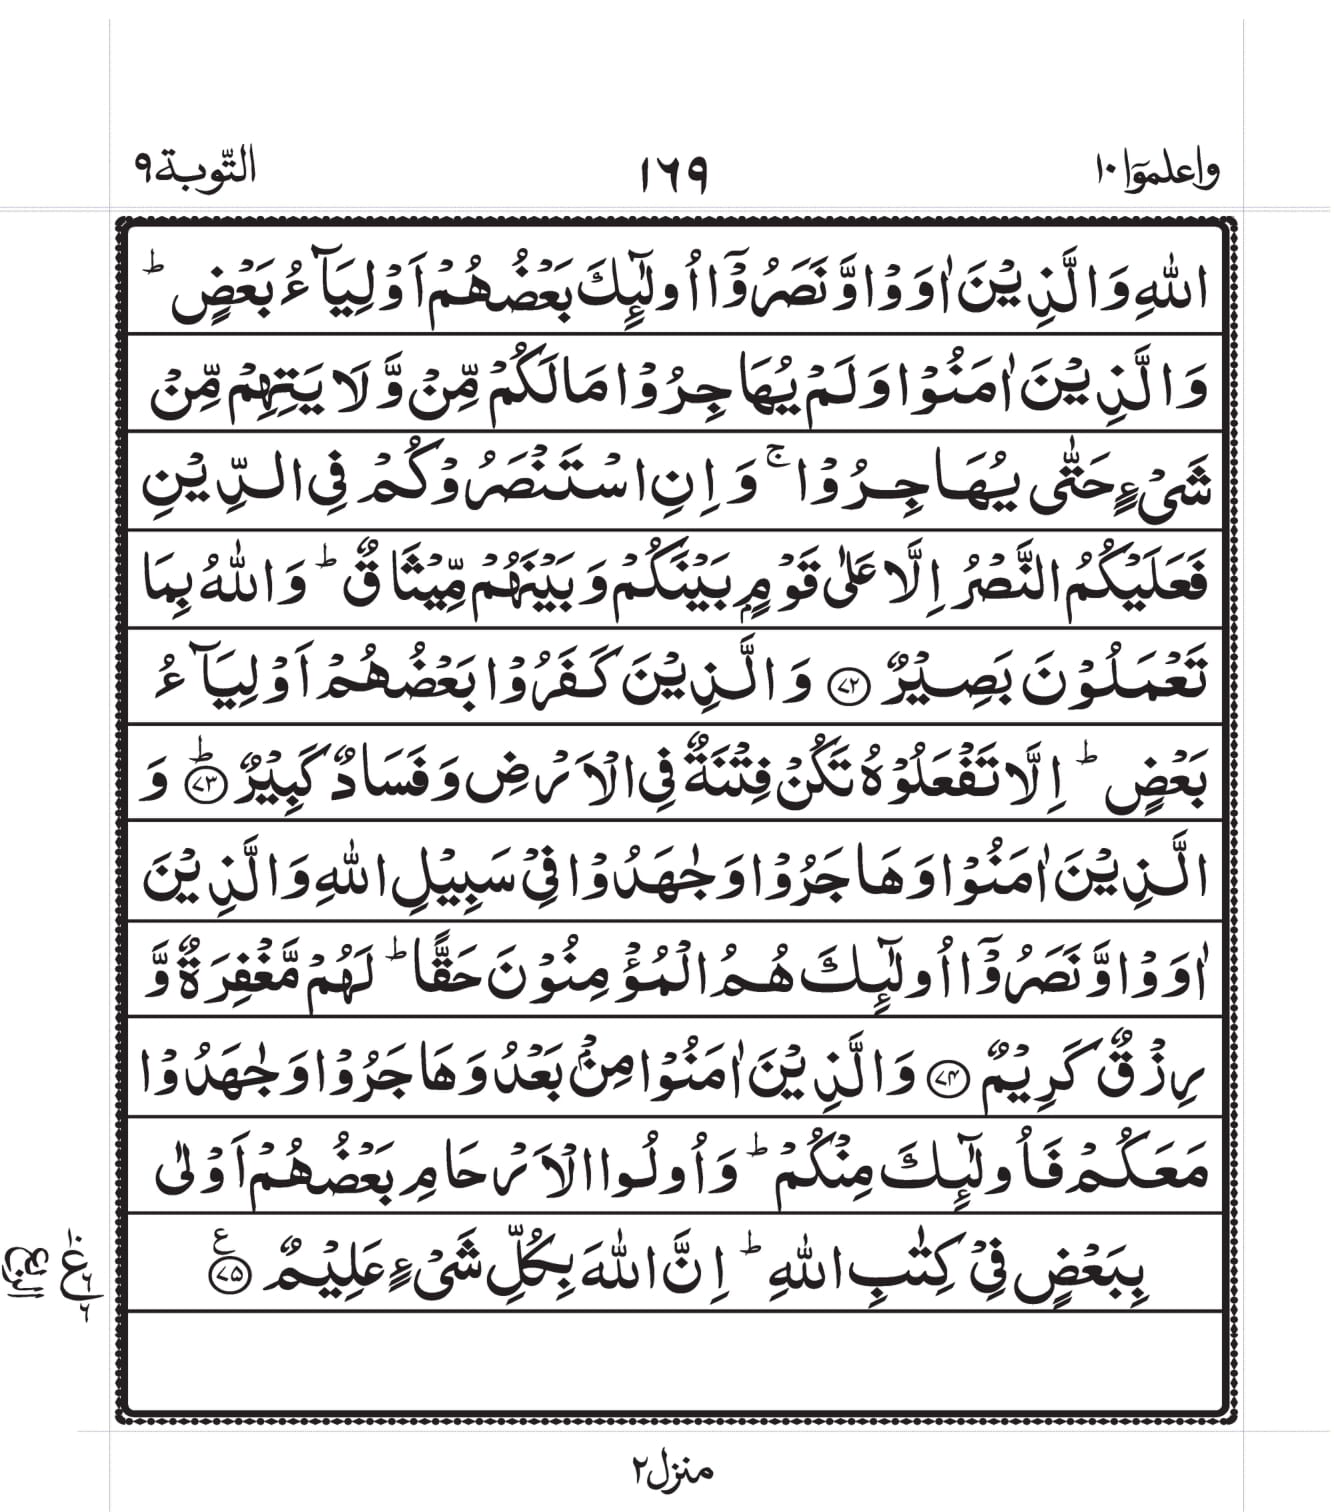 واعلموٓا۱۰
۱۶۹
التّوبة۹
اللهِ وَالَّذِيْنَ اٰوَوْا وَّنَصَرُوْٓا اُولٰٓئِكَ بَعْضُهُمْ اَوْلِيَآءُ بَعْضٍ ؕ
وَالَّذِيْنَ اٰمَنُوْا وَلَمْ يُهَاجِرُوْا مَالَكُمْ مِّنْ وَّلَا يَتِهِمْ مِّنْ
شَیْءٍ حَتّٰی يُهَاجِرُوْا ۚ وَاِنِ اسْتَنْصَرُوْكُمْ فِی الدِّيْنِ
فَعَلَيْكُمُ النَّصْرُ اِلَّا عَلٰی قَوْمٍۭ بَيْنَكُمْ وَبَيْنَهُمْ مِّيْثَاقٌ ؕ وَاللهُ بِمَا
تَعْمَلُوْنَ بَصِيْرٌ ﴿۷۲﴾ وَالَّذِيْنَ كَفَرُوْا بَعْضُهُمْ اَوْلِيَآءُ
بَعْضٍ ؕ اِلَّا تَفْعَلُوْهُ تَكُنْ فِتْنَةٌ فِی الْاَرْضِ وَفَسَادٌ كَبِيْرٌ ؕ﴿۷۳﴾ وَ
الَّذِيْنَ اٰمَنُوْا وَهَاجَرُوْا وَجٰهَدُوْا فِیْ سَبِيْلِ اللهِ وَالَّذِيْنَ
اٰوَوْا وَّنَصَرُوْٓا اُولٰٓئِكَ هُمُ الْمُؤْمِنُوْنَ حَقًّا ؕ لَهُمْ مَّغْفِرَةٌ وَّ
رِزْقٌ كَرِيْمٌ ﴿۷۴﴾ وَالَّذِيْنَ اٰمَنُوْا مِنْۢ بَعْدُ وَهَاجَرُوْا وَجٰهَدُوْا
مَعَكُمْ فَاُولٰٓئِكَ مِنْكُمْ ؕ وَاُولُوا الْاَرْحَامِ بَعْضُهُمْ اَوْلٰی
بِبَعْضٍ فِیْ كِتٰبِ اللهِ ؕ اِنَّ اللهَ بِكُلِّ شَیْءٍ عَلِيْمٌ ﴿۷۵﴾ ع
منزل۲